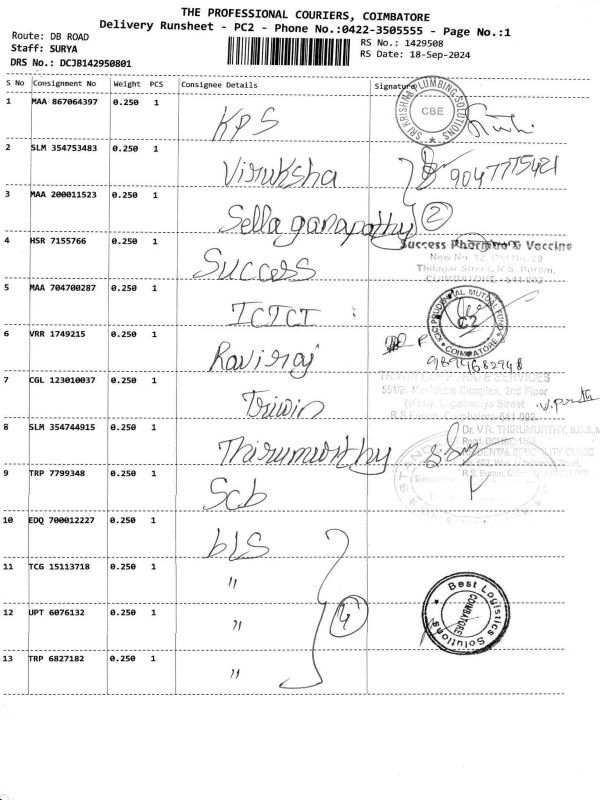 THE PROFESSIONAL COURIERS, COIMBATORE
Delivery Runsheet - PC2 - Phone No.:0422-3505555 - Page No.:1
Route: DB ROAD
Staff: SURYA
DRS No.: DCJB142950801
RS No.: 1429508
RS Date: 18-Sep-2024
S No Consignment No Weight PCS Consignee Details Signature
1 MAA 867064397 0.250 1 KPS
SRI KRISHNA PLUMBING SOLUTIONS CBE
2 SLM 354753483 0.250 1 Viruksha
9047775421
3 MAA 200011523 0.250 1 Sella ganapathy 2
4 HSR 7155766 0.250 1 Success
Success Pharma & Vaccine
New No. 12, Old No. 29
Thilagar Street, R.S. Puram,
COIMBATORE - 641 002
5 MAA 704700287 0.250 1 ICICI
ICICI PRUDENTIAL MUTUAL FUND C2 COIMBATORE
6 VRR 1749215 0.250 1 Raviraj
7 CGL 123010037 0.250 1 Triwin
TRIWIN CORPORATE SERVICES
Complex, 2nd Floor
Street
R.S. Puram, Coimbatore-641 002
8 SLM 354744915 0.250 1 Thirumurthy
Dr. V.R. THIRUMURTHY, B.D.S.,
DENTAL SPECIALITY CLINIC
R.S. Puram,
9 TRP 7799348 0.250 1 Scb
10 EDQ 700012227 0.250 1 bLS
11 TCG 15113718 0.250 1 "
12 UPT 6076132 0.250 1 " 4
13 TRP 6827182 0.250 1 "
Best Logistics Solutions COIMBATORE